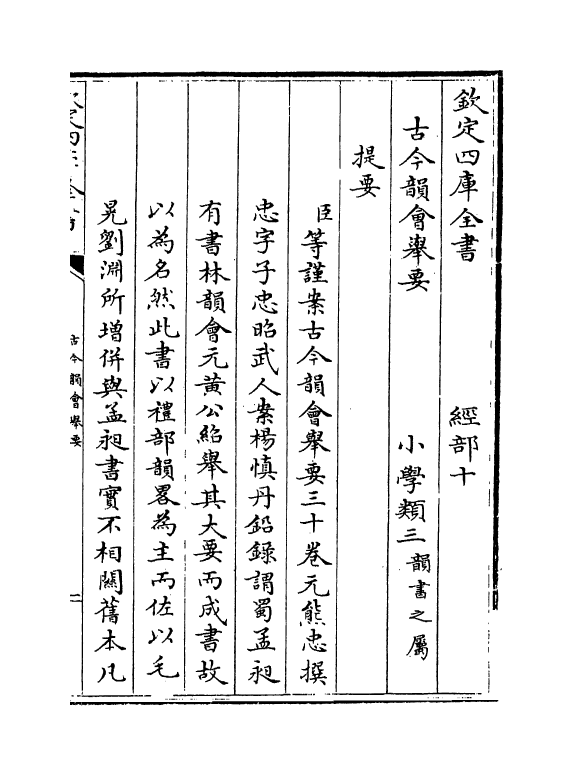 欽定四庫全書　經部十
古今韻會舉要　小學類三韻書之屬
提要
臣等謹案古今韻會舉要三十卷元熊忠撰
忠字子忠昭武人案楊慎丹鉛錄謂蜀孟昶
有書林韻會元黃公紹舉其大要而成書故
以為名然此書以禮部韻畧為主而佐以毛
晃劉淵所增併與孟昶書實不相關舊本凡
古今韻會舉要